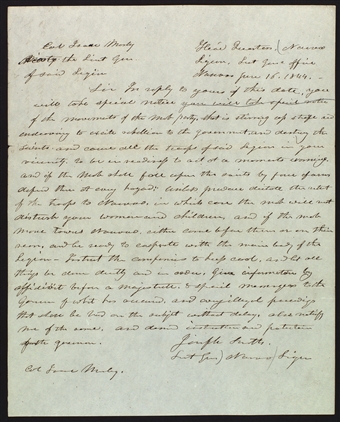 Col Isaac Morley
the Lieut Gen
of said Legion
Head Quarters, Nauvoo
Legion, Lieut Gens office
Nauvoo June 16. 1844.
Sir In reply to yours of this date, you
will take special notice
of the movements of the Mob party, that is stirring up strife in
endevoring to excite rebellion to the government and destroy the
Saints and cause all the troops of said Legion in your
vicinity to be in readiness to act at a moments warning
and if the Mob shall fall upon the saints by force of arms
defend them at every hazard unless prudence dictate the retreat
of the troops to Nauvoo, in which case the mob will not
disturb your women and children, and if the mob
move towards Nauvoo, either come before them or on their
rear, and be ready to cooperate with the main body of the
Legion Instruct the companies to keep cool, and let all
things be done decently and in order, Give information by
affidavit before a Magistrate & special messengers to the
Governor of what has occured, and every illegal proceedings
that shall be had on the subject without delay, also notify
me of the same, and demand instruction and protection
from the governor.
Joseph Smith
Lieut Gen Nauvoo Legion
Col Isaac Morley.